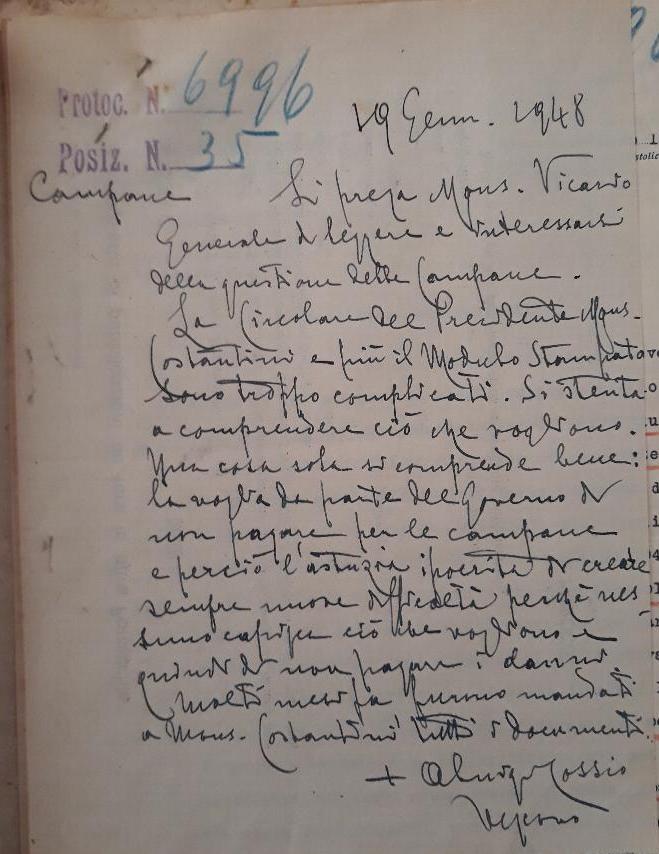 Protoc. N. 6996
19 Genn. 1948
Posiz. N. 35
Campane
Si prega Mons. Vicario
Generale di leggere e interessarsi
della questione delle Campane.
La Circolare del Presidente Mons.
Costantini e più il Modulo Stampato
sono troppo complicati. Si stenta
a comprendere ciò che vogliono.
Una cosa sola si comprende bene:
la voglia da parte del Governo di
non pagare per le campane
e perciò l'astuzia ipocrita di creare
sempre nuove difficoltà perchè nes
suno capisca ciò che vogliono e
quindi di non pagare i danni.
Molti mesi fa furono mandati
a Mons. Costantini tutti i documenti.
+ Aluigi Cossio
Vescovo